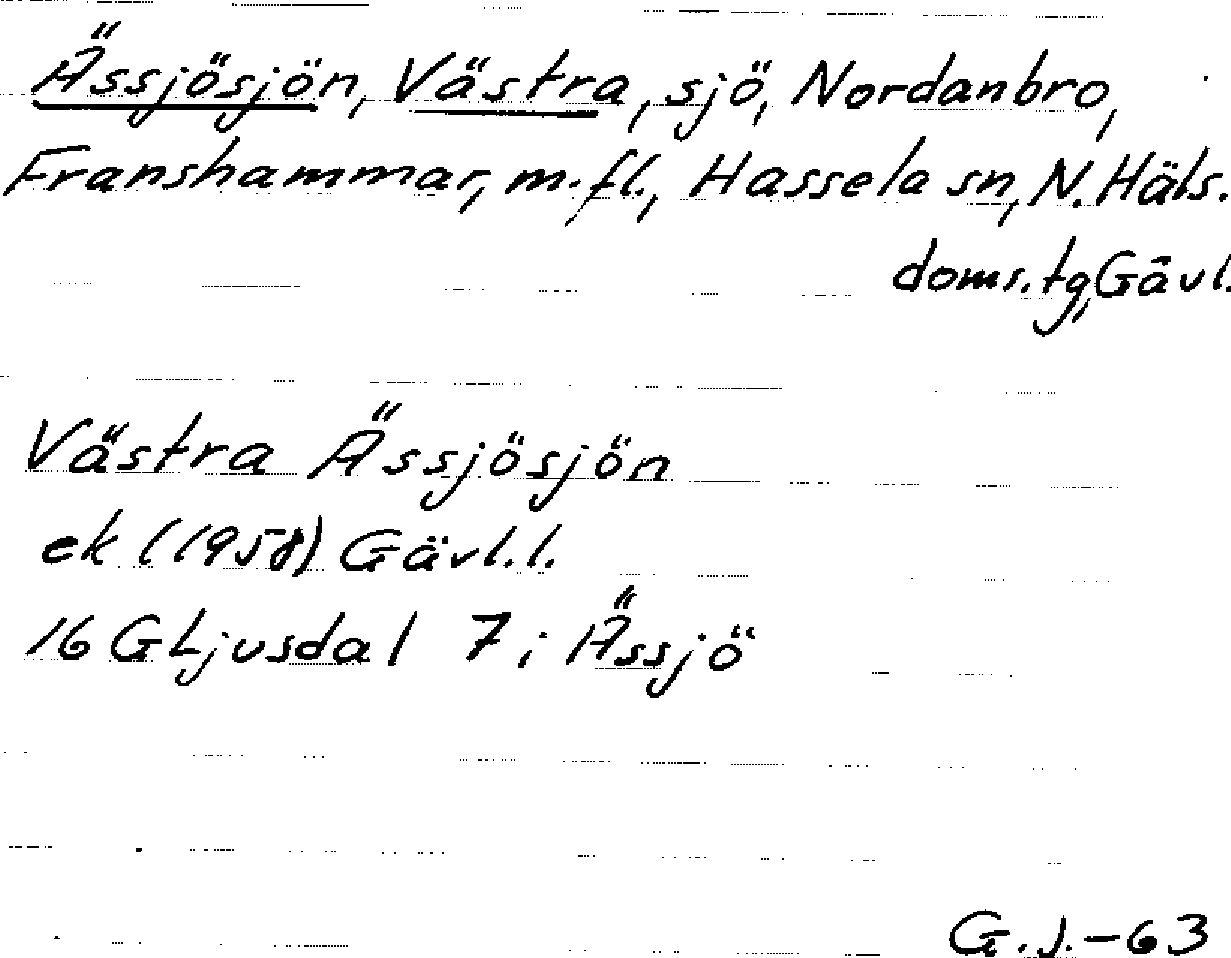 Ässjösjön, Västra, sjö, Nordanbro,
Franshammar, m.fl., Hassela sn, N. Häls.
doms.tg, Gävl.
Västra Ässjösjön
ek (1958) Gävl.l.
16 G Ljusdal 7 i Ässjö
G.J.-63